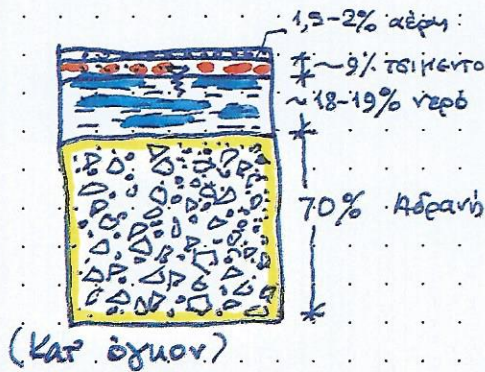 1,5-2% αέρας
~9% τσιμέντο
~18-19% νερό
70% Αδρανή
(κατ' όγκον)